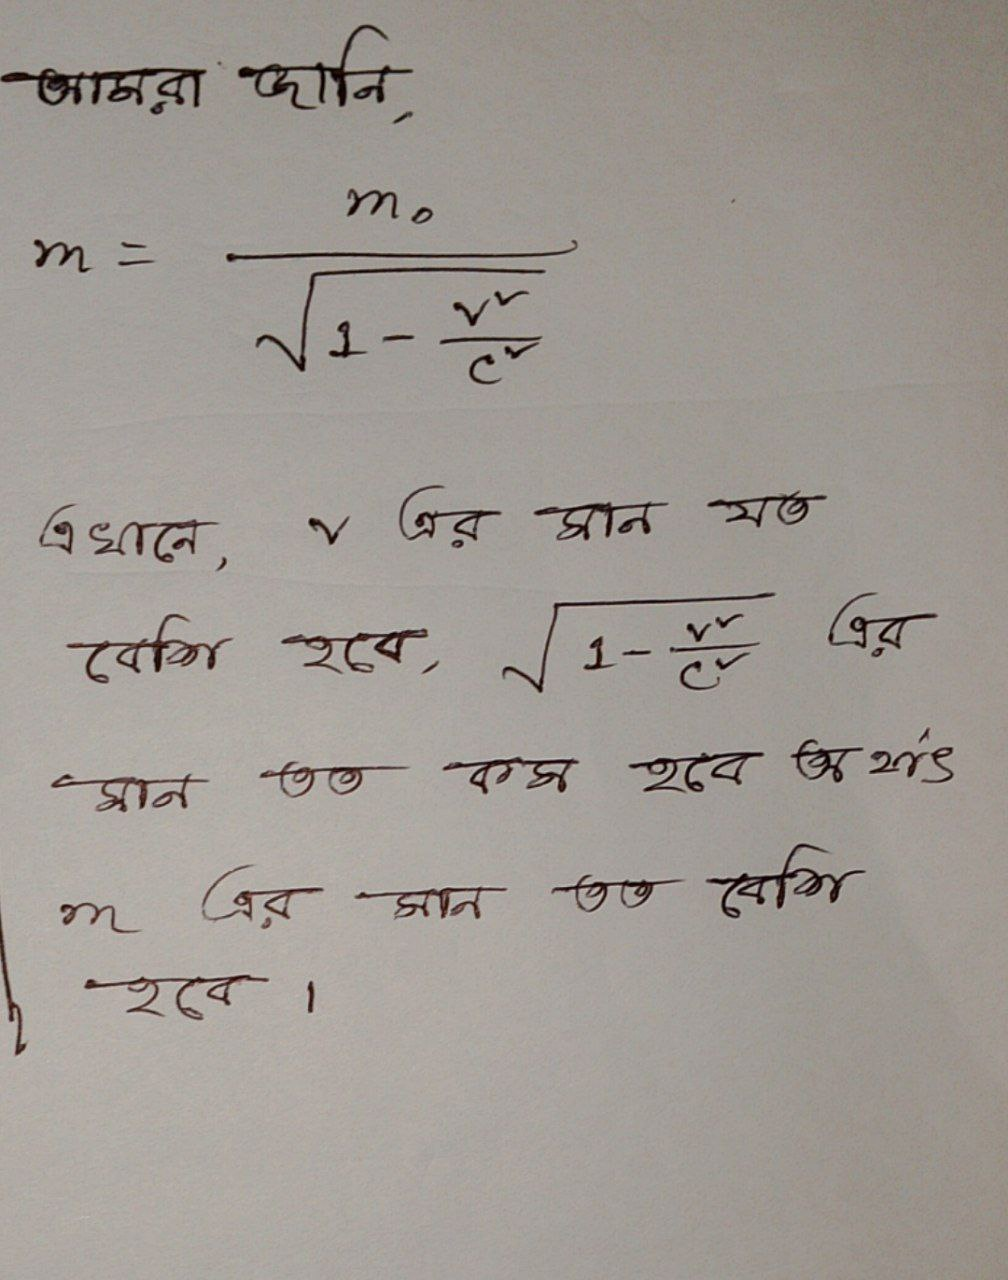 আমরা জানি,
m = m₀ / √(1 - v²/c²)
এখানে, v এর মান যত
বেশি হবে, √(1 - v²/c²) এর
মান তত কম হবে অর্থাৎ
m এর মান তত বেশি
হবে।